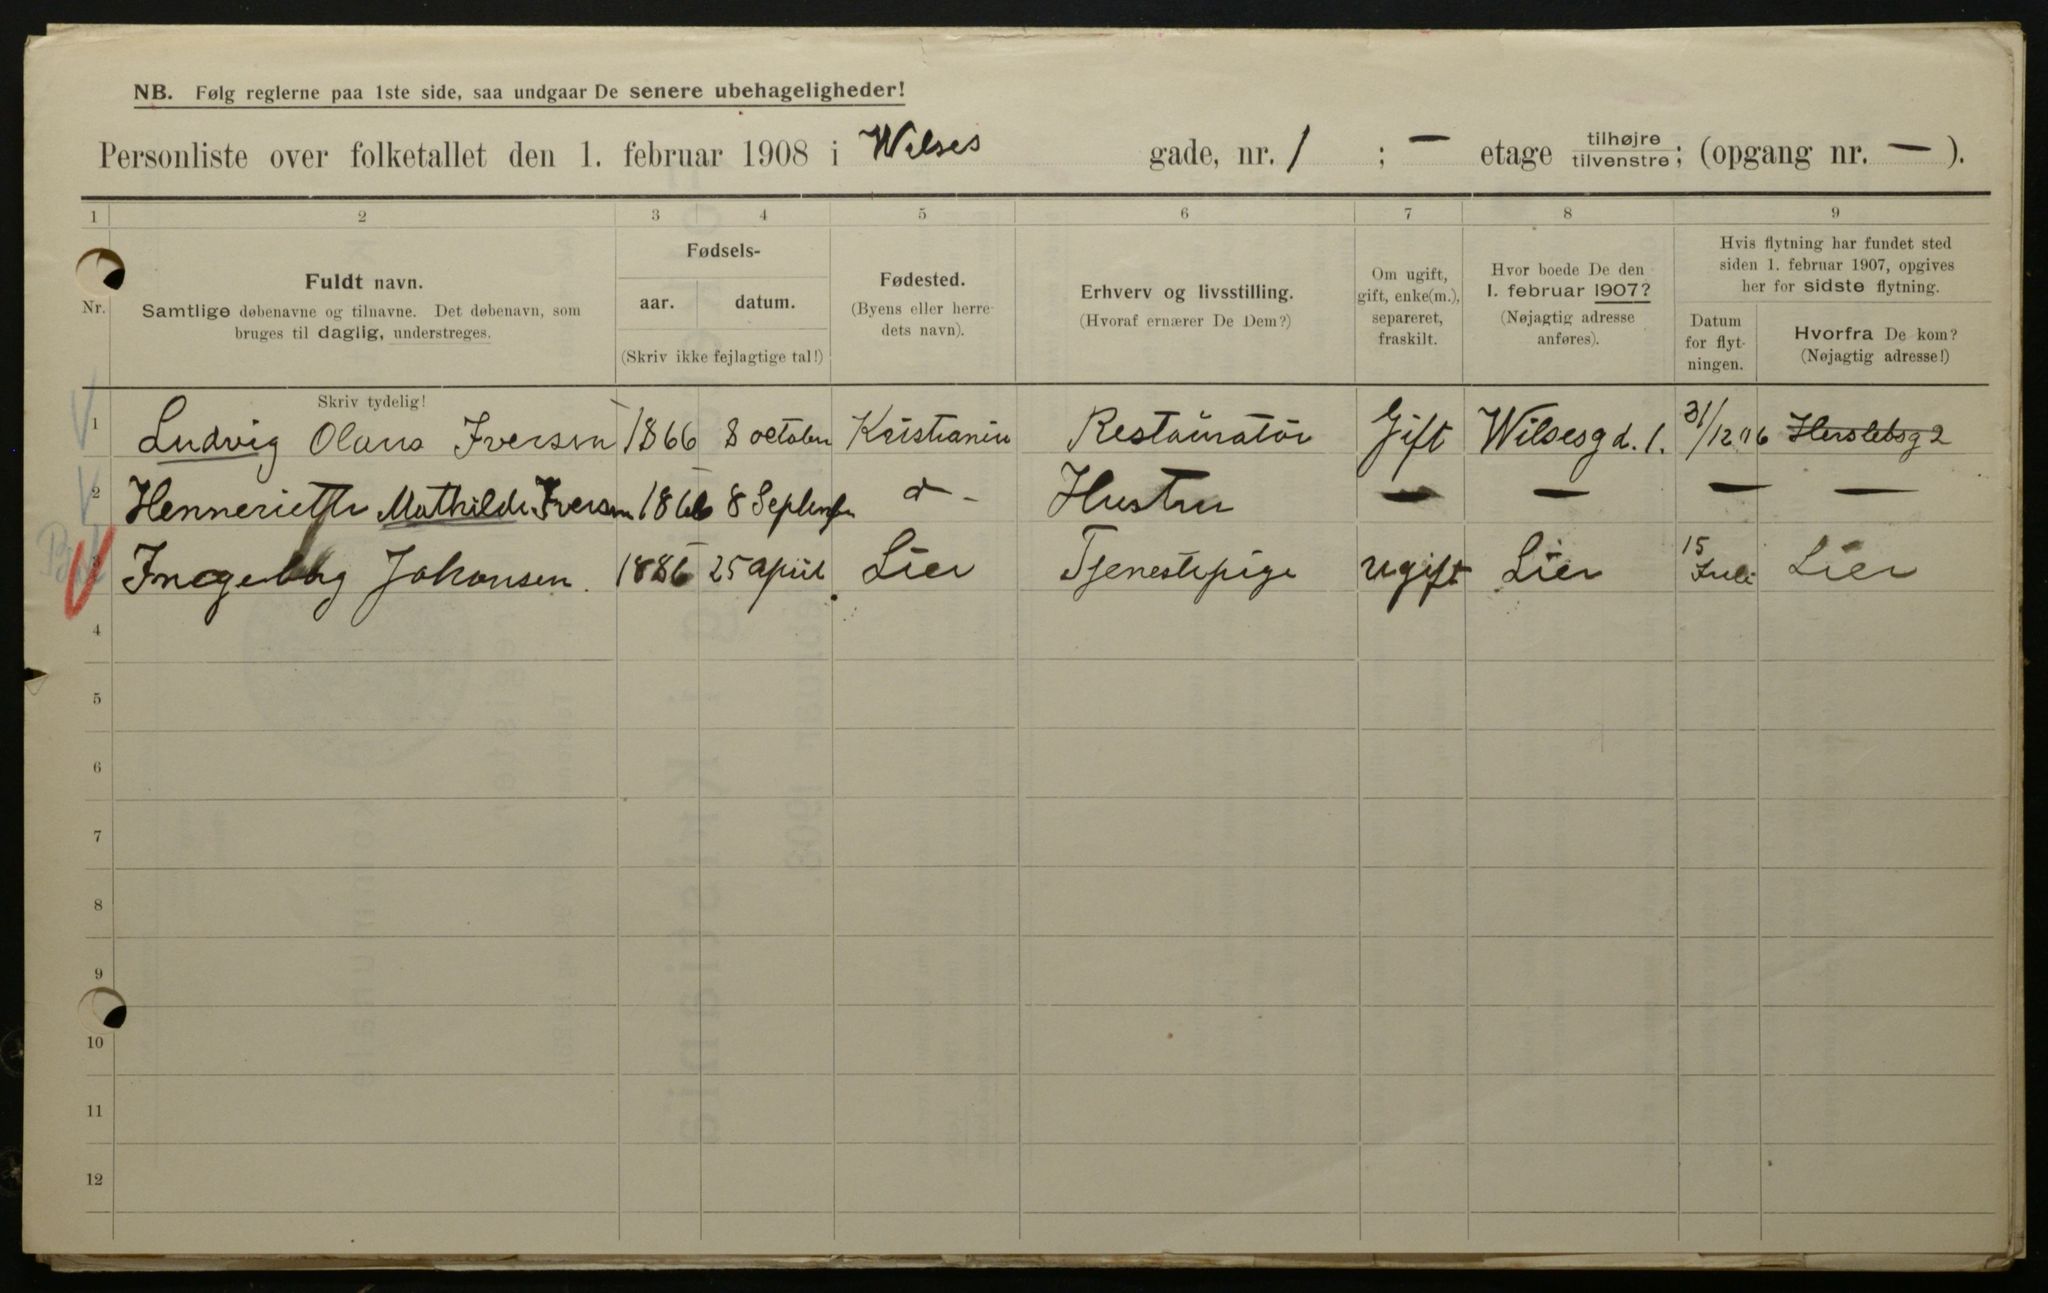 NB. Følg reglerne paa 1ste side, saa undgaar De senere ubehageligheder!
Personliste over folketallet den 1. februar 1908 i Wilses gade, nr. 1 ; — etage tilhøjre tilvenstre; (opgang nr. — ).
1 2 3 4 5 6 7 8 9
Nr.
Fuldt navn.
Samtlige døbenavne og tilnavne. Det døbenavn, som
bruges til daglig, understreges.
Skriv tydelig!
Fødsels-
aar. datum.
(Skriv ikke fejlagtige tal!)
Fødested.
(Byens eller herre-
dets navn).
Erhverv og livsstilling.
(Hvoraf ernærer De Dem?)
Om ugift,
gift, enke(m.),
separeret,
fraskilt.
Hvor boede De den
1. februar 1907?
(Nøjagtig adresse
anføres).
Hvis flytning har fundet sted
siden 1. februar 1907, opgives
her for sidste flytning.
Datum
for flyt-
ningen.
Hvorfra De kom?
(Nøjagtig adresse!)
1 Ludvig Olaus Iversen 1866 8 october Kristiania Restauratør Gift Wilsesgd. 1. 31/12 06 Herslebsg 2
2 Henneriette Mathilde Iversen 1866 8 September d - Hustru — — — —
3 Ingeborg Johansen. 1886 25 april Lier Tjenestepige ugift Lier 15 Juli Lier
4
5
6
7
8
9
10
11
12